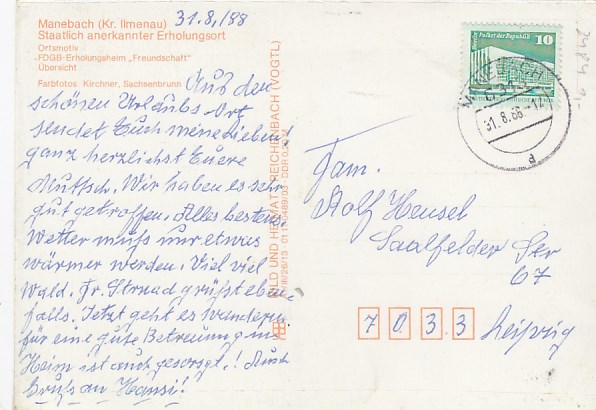 Manebach (Kr. Ilmenau)
31.8./88
Staatlich anerkannter Erholungsort
Ortsmotiv
FDGB-Erholungsheim „Freundschaft"
Übersicht
Farbfotos Kirchner, Sachsenbrunn
Aus dem
schönen Urlaubs-Ort
sendet Euch meine Lieben!
ganz herzlichst Euere
Muttsch. Wir haben es sehr
gut getroffen. Alles bestens.
Wetter muß nur etwas
wärmer werden. Viel viel
Wald. Fr. Strnad grüßt eben-
falls. Jetzt geht es wandern
für eine gute Betreuung im
Heim ist auch gesorgt.! Auch
Gruß an Hansi!
BILD UND HEIMAT REICHENBACH (VOGTL)
Palast der Republik
10
MANEBACH
6315
31.8.88-12
a
Fam.
Rolf Hensel
Saalfelder Str
67
7033 Leipzig